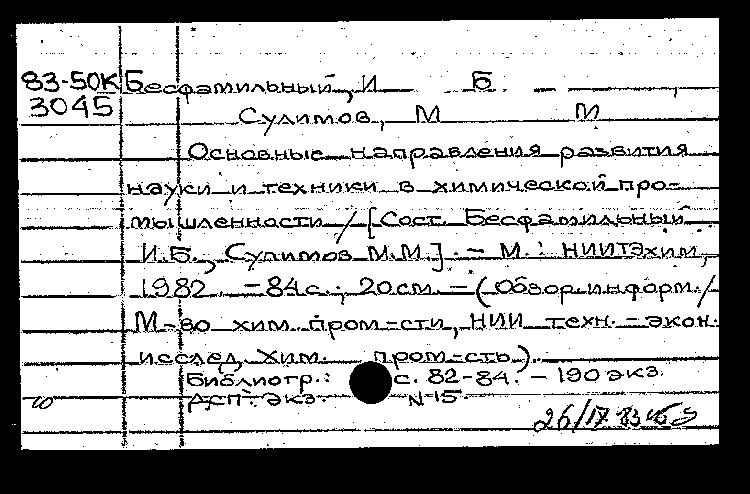 83-50К Бесфамильный, И Б. —
3045 Сулимов, М М
Основные направления развития
науки и техники в химической про-
мышленности / [Сост. Бесфамильный
И.Б., Сулимов М.М.]. - М.: НИИТЭхим,
1982. - 84 с.; 20 см. - (Обзор. информ. /
М-во хим. пром-сти, НИИ техн.-экон.
исслед. хим. пром-сть).
Библиогр.: с. 82-84. - 190 экз.
ДСП. экз. N 15.